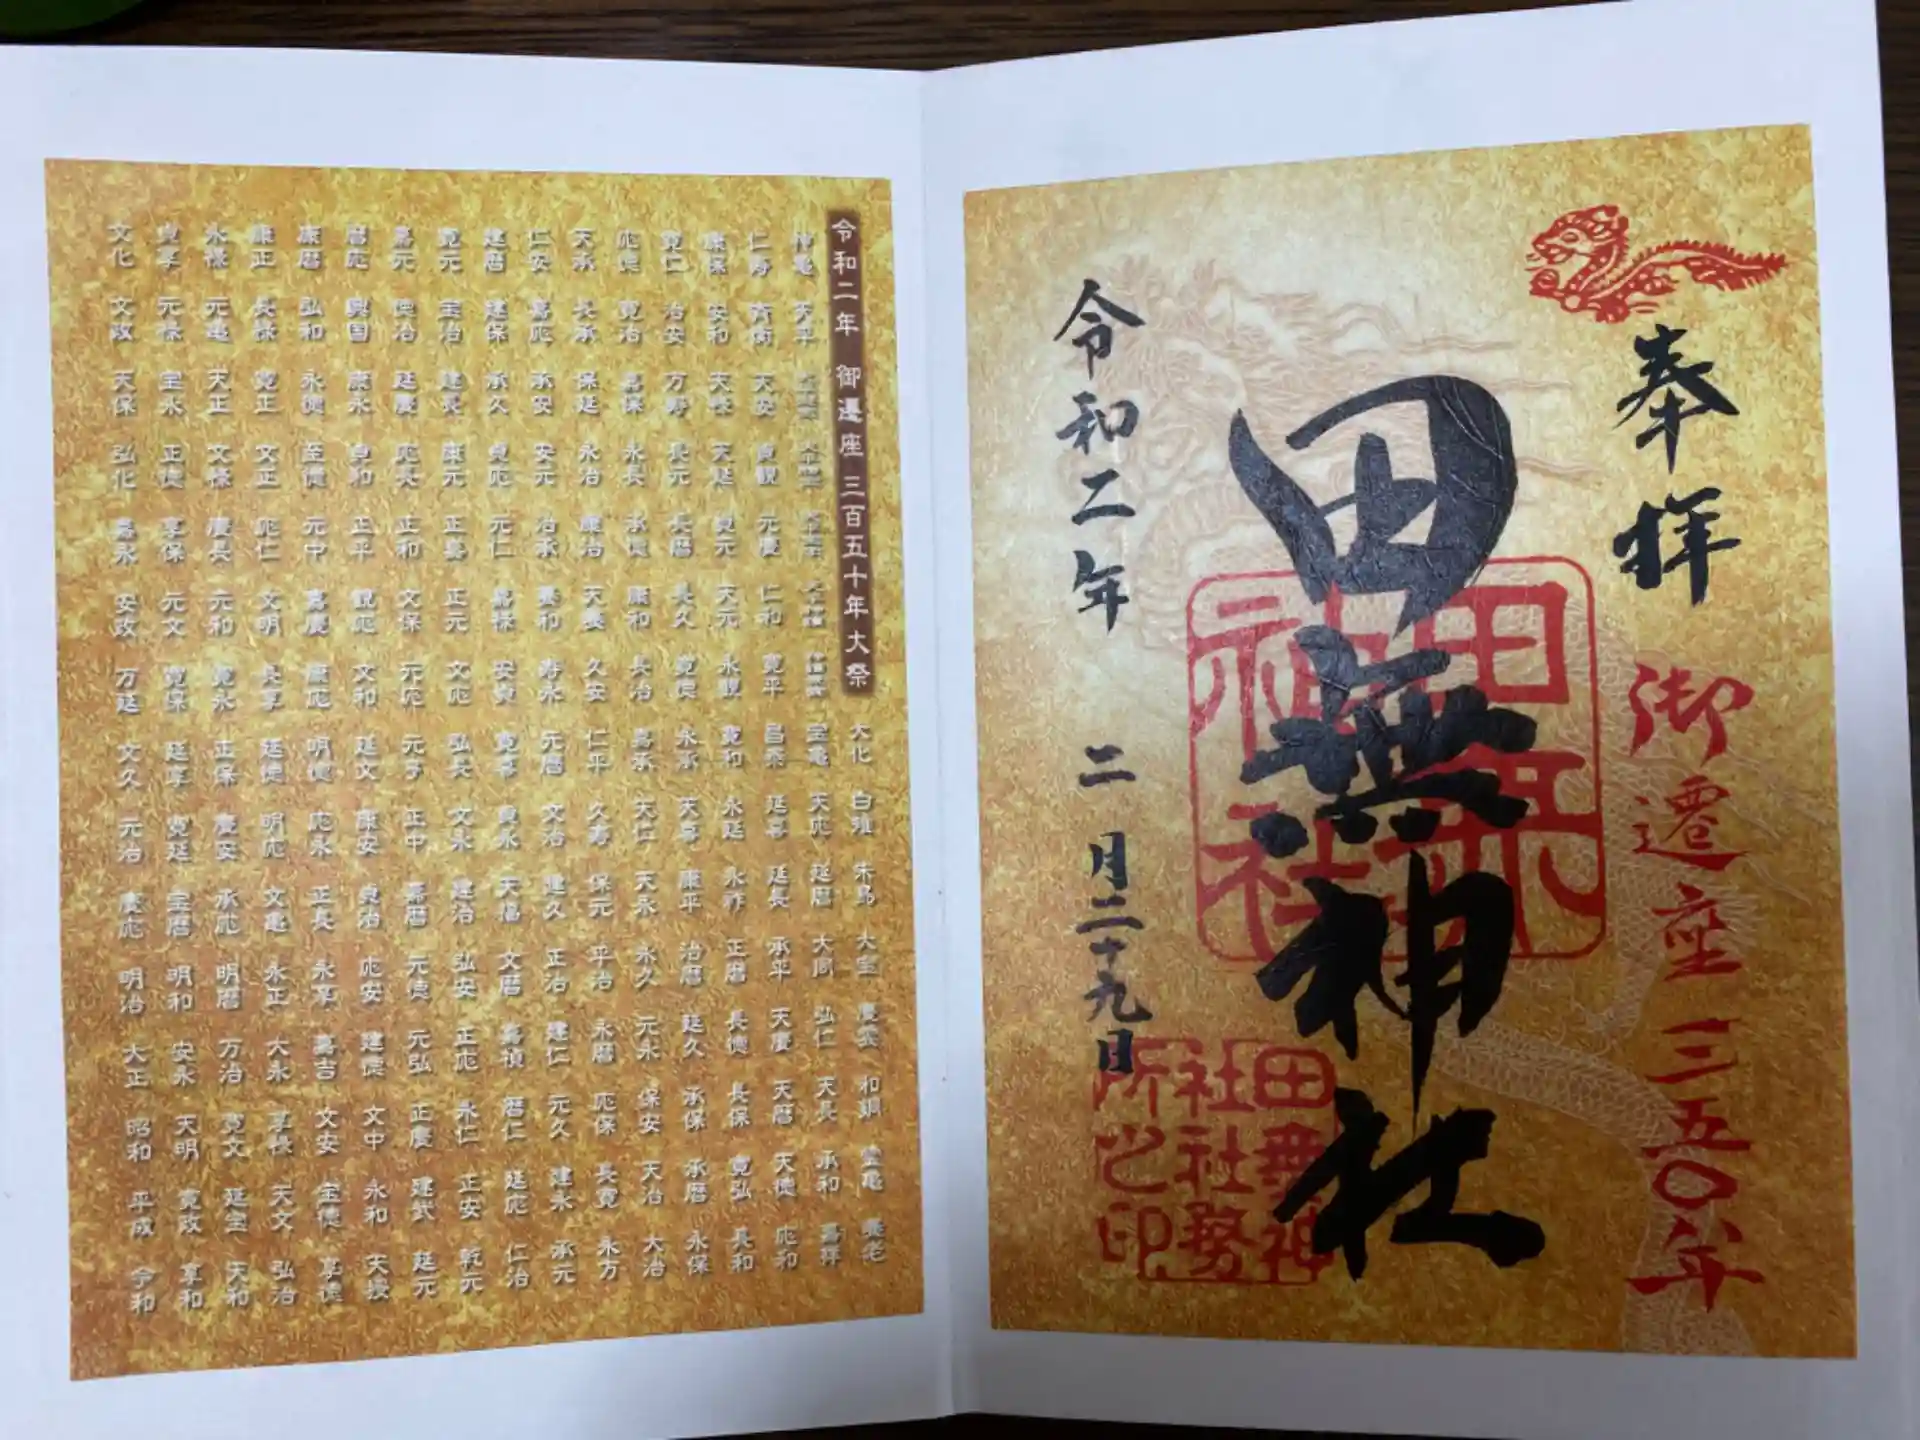 奉拝
御遷座三五〇年
田無神社
田無神社
田無神社社務所之印
令和二年 二月二十九日
令和二年 御遷座三百五十年大祭 大化 白雉 朱鳥 大宝 慶雲 和銅 霊亀 養老
神亀 天平 天平感宝 天平勝宝 天平宝字 天平神護 神護景雲 宝亀 天応 延暦 大同 弘仁 天長 承和 嘉祥
仁寿 斉衡 天安 貞観 元慶 仁和 寛平 昌泰 延喜 延長 承平 天慶 天暦 天徳 応和
康保 安和 天禄 天延 貞元 天元 永観 寛和 永延 永祚 正暦 長徳 長保 寛弘 長和
寛仁 治安 万寿 長元 長暦 長久 寛徳 永承 天喜 康平 治暦 延久 承保 承暦 永保
応徳 寛治 嘉保 永長 承徳 康和 長治 嘉承 天仁 天永 永久 元永 保安 天治 大治
天承 長承 保延 永治 康治 天養 久安 仁平 久寿 保元 平治 永暦 応保 長寛 永万
仁安 嘉応 承安 安元 治承 養和 寿永 元暦 文治 建久 正治 建仁 元久 建永 承元
建暦 建保 承久 貞応 元仁 嘉禄 安貞 寛喜 貞永 天福 文暦 嘉禎 暦仁 延応 仁治
寛元 宝治 建長 康元 正嘉 正元 文応 弘長 文永 建治 弘安 正応 永仁 正安 乾元
嘉元 徳治 延慶 応長 正和 文保 元応 元亨 正中 嘉暦 元徳 元弘 正慶 建武 延元
暦応 興国 康永 貞和 正平 観応 文和 延文 康安 貞治 応安 建徳 文中 永和 天授
康暦 弘和 永徳 至徳 元中 嘉慶 康応 明徳 応永 正長 永享 嘉吉 文安 宝徳 享徳
康正 長禄 寛正 文正 応仁 文明 長享 延徳 明応 文亀 永正 大永 享禄 天文 弘治
永禄 元亀 天正 文禄 慶長 元和 寛永 正保 慶安 承応 明暦 万治 寛文 延宝 天和
貞享 元禄 宝永 正徳 享保 元文 寛保 延享 寛延 宝暦 明和 安永 天明 寛政 享和
文化 文政 天保 弘化 嘉永 安政 万延 文久 元治 慶応 明治 大正 昭和 平成 令和